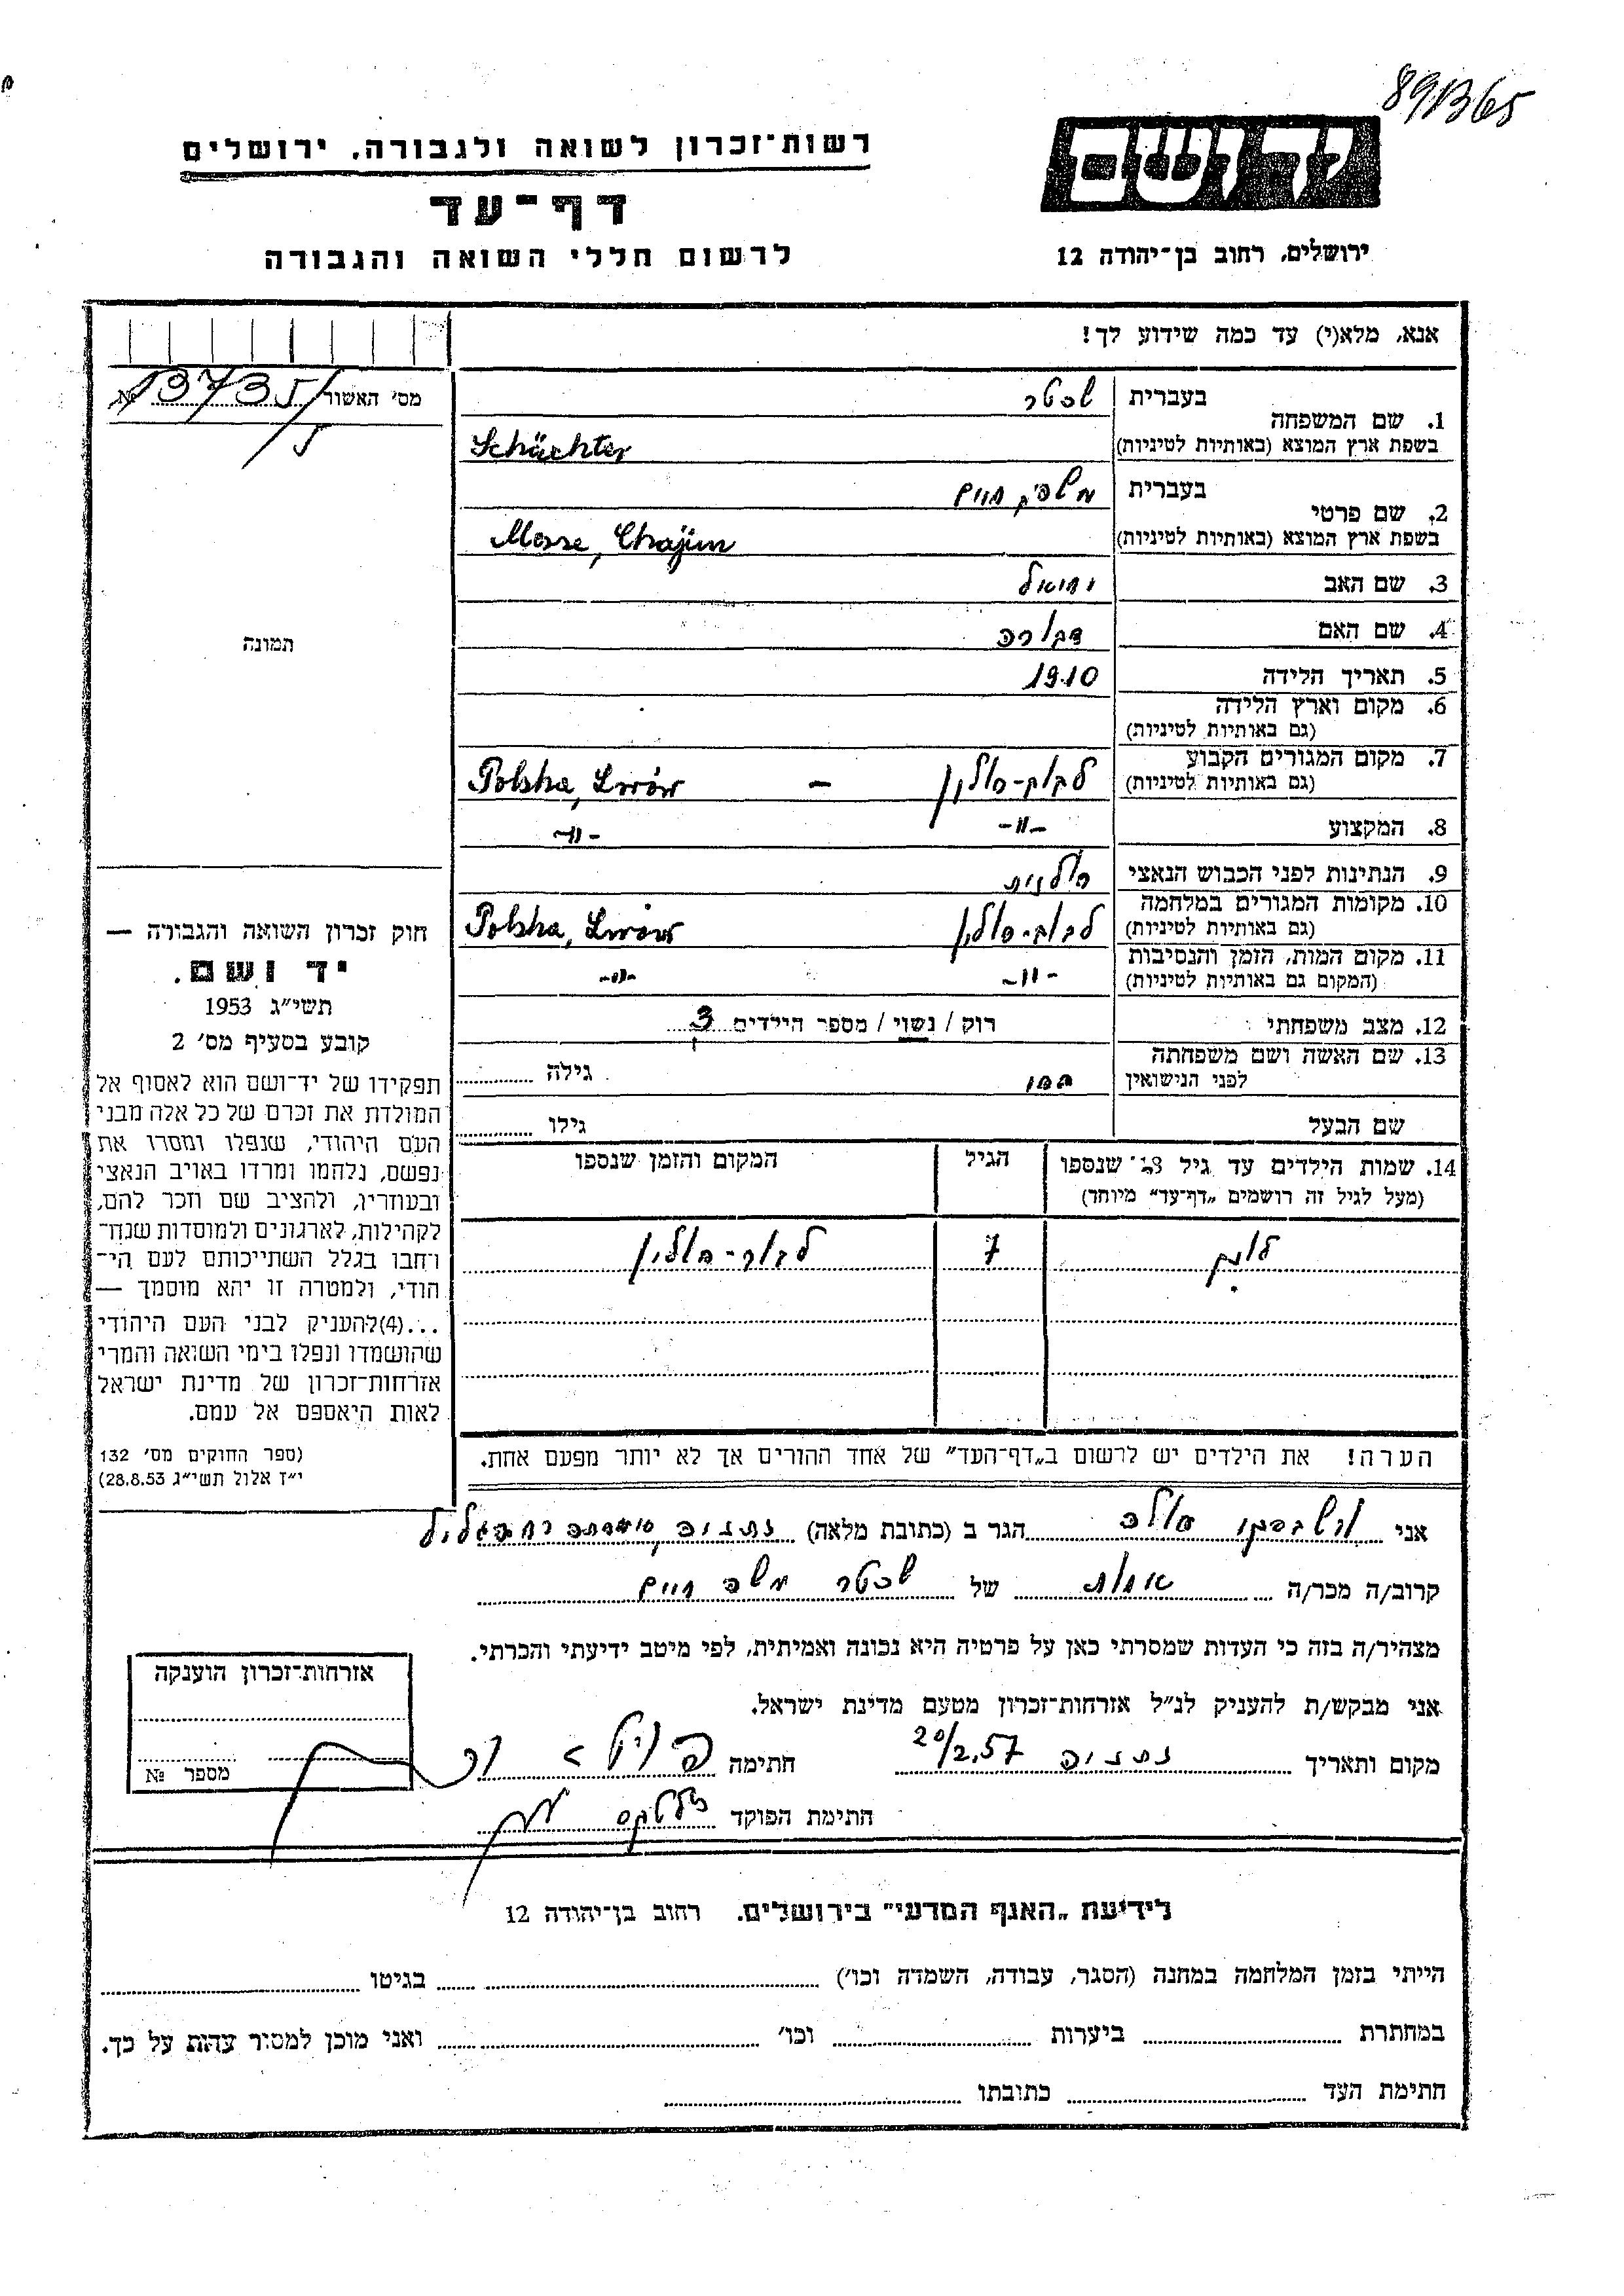 89B65
יד ושם
רשות-זכרון לשואה ולגבורה, ירושלים
דף-עד
לרשום חללי השואה והגבורה
ירושלים, רחוב בן-יהודה 12
אנא, מלא(י) עד כמה שידוע לך!
מס' האשור 13735/ №
5
1. שם המשפחה
בעברית שכטר
בשפת ארץ המוצא (באותיות לטיניות) Schächter
2. שם פרטי
בעברית משה, חיים
בשפת ארץ המוצא (באותיות לטיניות) Mosse, Chajim
3. שם האב יחיאל
4. שם האם דבורה
5. תאריך הלידה 1910
6. מקום וארץ הלידה
(גם באותיות לטיניות)
7. מקום המגורים הקבוע
(גם באותיות לטיניות) לבוב-פולין — Polska, Lwów
8. המקצוע -"- -"-
9. הנתינות לפני הכבוש הנאצי פולנית
10. מקומות המגורים במלחמה
(גם באותיות לטיניות) לבוב-פולין Polska, Lwów
11. מקום המות, הזמן והנסיבות
(המקום גם באותיות לטיניות) -"- -"-
12. מצב משפחתי רוק / נשוי / מספר הילדים 3
13. שם האשה ושם משפחתה
לפני הנישואין גילה
שם הבעל גילו
14. שמות הילדים עד גיל 18 שנספו הגיל המקום והזמן שנספו
(מעל לגיל זה רושמים „דף-עד" מיוחד)
7 לבוב-פולין
הערה! את הילדים יש לרשום ב„דף-העד" של אחד ההורים אך לא יותר מפעם אחת.
תמונה
חוק זכרון השואה והגבורה —
יד ושם.
תשי"ג 1953
קובע בסעיף מס' 2
תפקידו של יד-ושם הוא לאסוף אל
המולדת את זכרם של כל אלה מבני
העם היהודי, שנפלו ומסרו את
נפשם, נלחמו ומרדו באויב הנאצי
ובעוזריו, ולהציב שם וזכר להם,
לקהילות, לארגונים ולמוסדות שנח-
רחבו בגלל השתייכותם לעם הי-
הודי, ולמטרה זו יהא מוסמך —
...(4)להעניק לבני העם היהודי
שהושמדו ונפלו בימי השואה והמרי
אזרחות-זכרון של מדינת ישראל
לאות היאספם אל עמם.
(ספר החוקים מס' 132
י"ז אלול תשי"ג 28.8.53)
אני הגר ב (כתובת מלאה) נתניה
קרוב/ה מכר/ה אחות של שכטר משה חיים
מצהיר/ה בזה כי העדות שמסרתי כאן על פרטיה היא נכונה ואמיתית, לפי מיטב ידיעתי והכרתי.
אני מבקש/ת להעניק לנ"ל אזרחות-זכרון מטעם מדינת ישראל.
מקום ותאריך נתניה 20/2.57 חתימה
חתימת הפוקד
אזרחות-זכרון הוענקה
מספר №
לידיעת „האגף המדעי" בירושלים. רחוב בן-יהודה 12
הייתי בזמן המלחמה במחנה (הסגר, עבודה, השמדה וכו') בגיטו
במחתרת ביערות וכו' ואני מוכן למסור עדות על כך.
חתימת העד כתובתו